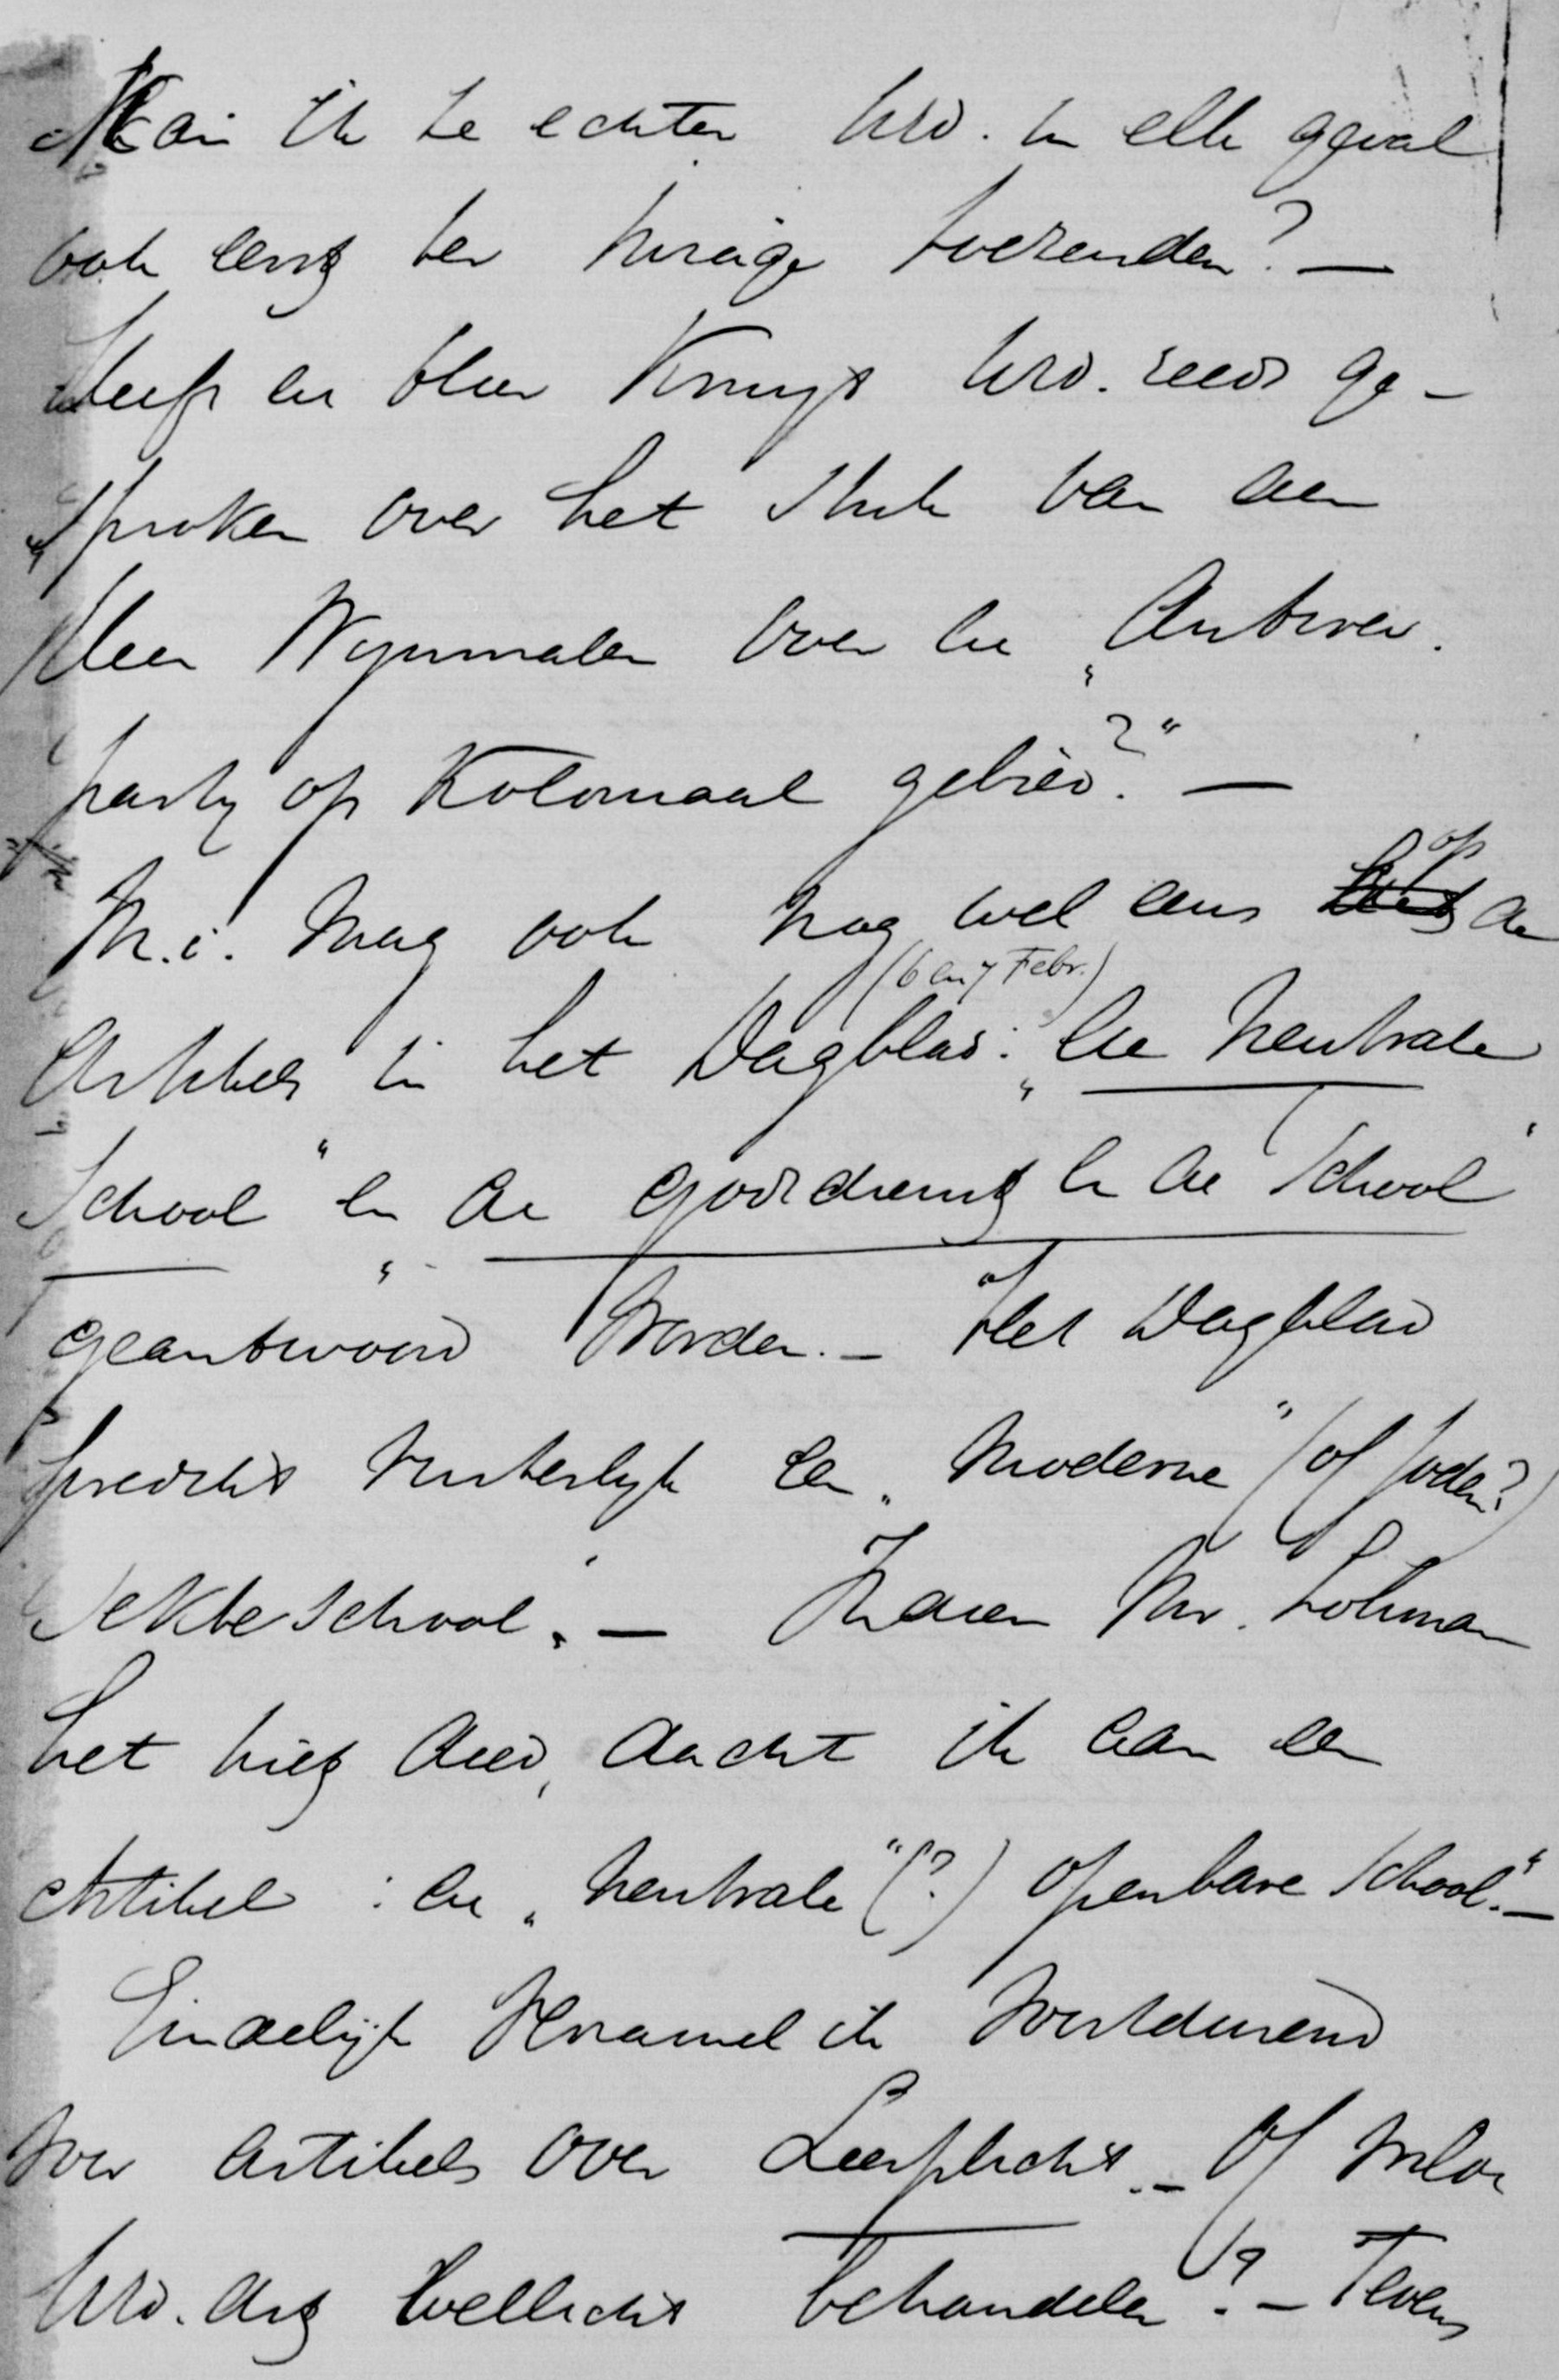 Kan ik ze echter UEd. in elk geval
ook eens ter inzage toezenden? —
Heeft de Heer Kruyt UEd. reeds ge-
sproken over het stuk van den
Heer Wynmalen over de „Antirev.
party op Koloniaal gebied?" —
M.i. mag ook nog wel eens op de
Artikels in het Dagblad: (6 en 7 Febr.) „De neutrale
School" en „de godsdienst in de School"
geantwoord worden. — Het Dagblad
predikt een „moderne" (of Joden?)
sekteschool. — Indien Mr. Lohman
het niet deed, dacht ik aan een
Artikel: de „neutrale" (?) openbare School." —
Eindelijk verzamel ik voortdurend
voor artikels over Leerplicht. — Of wilde
UEd. dit wellicht behandelen? — Tevens